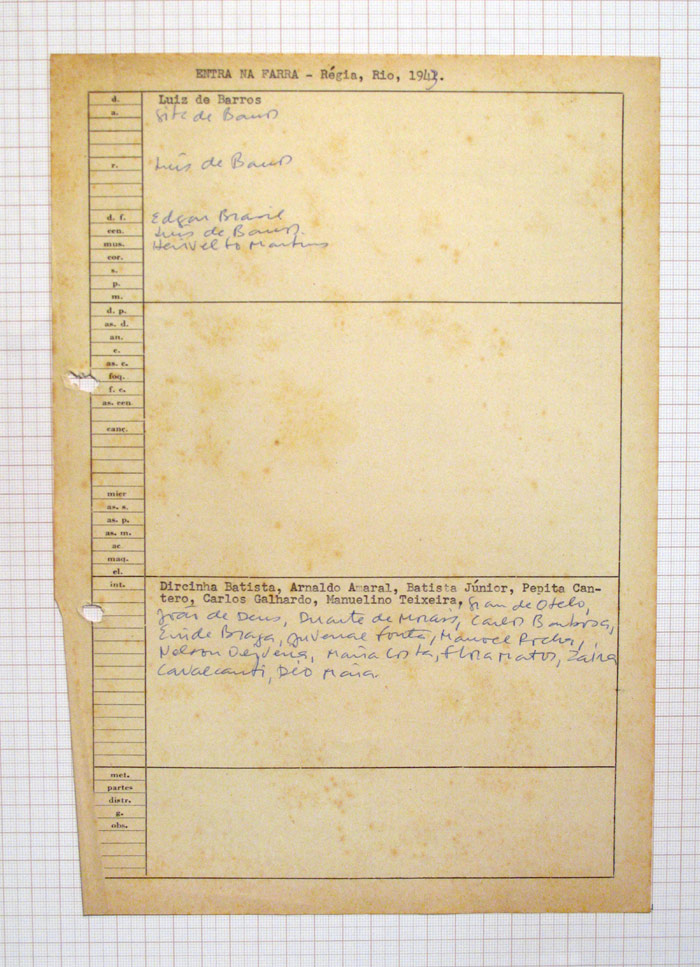 ENTRA NA FARRA - Régia, Rio, 1943.
d. Luiz de Barros
a. Gita de Barros
r. Luis de Barros
d. f. Edgar Brasil
cen. Luis de Barros.
mus. Herivelto Martins
cor.
s.
p.
m.
d. p.
as. d.
an.
c.
as. c.
foq.
f. c.
as. cen.
canc.
micr
as. s.
as. p.
as. m.
ac
maq.
el.
int. Dircinha Batista, Arnaldo Amaral, Batista Júnior, Pepita Can-
tero, Carlos Galhardo, Manuelino Teixeira, Gran de Otelo,
João de Deus, Duarte de Moraes, Carlos Barbosa,
Eneide Braga, Juvenal Fontes, Manoel Rocha,
Nelson Maria Costa, Flora Matos, Zaira
Cavalcanti, Déo Maia.
met.
partes
distr.
g.
obs.